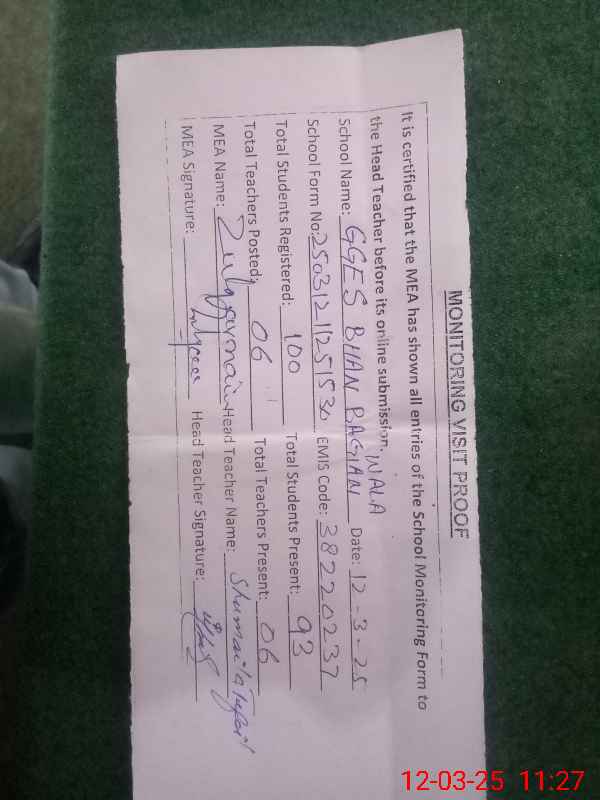 MONITORING VISIT PROOF
It is certified that the MEA has shown all entries of the School Monitoring Form to
the Head Teacher before its online submission.
School Name: GGES BHAN BAGIAN WALA Date: 12-3-25
School Form No: EMIS Code: 38220237
Total Students Registered: 100 Total Students Present: 93
Total Teachers Posted: 06 Total Teachers Present: 06
MEA Name: Head Teacher Name: Shumaila
MEA Signature: Head Teacher Signature:
12-03-25 11:27